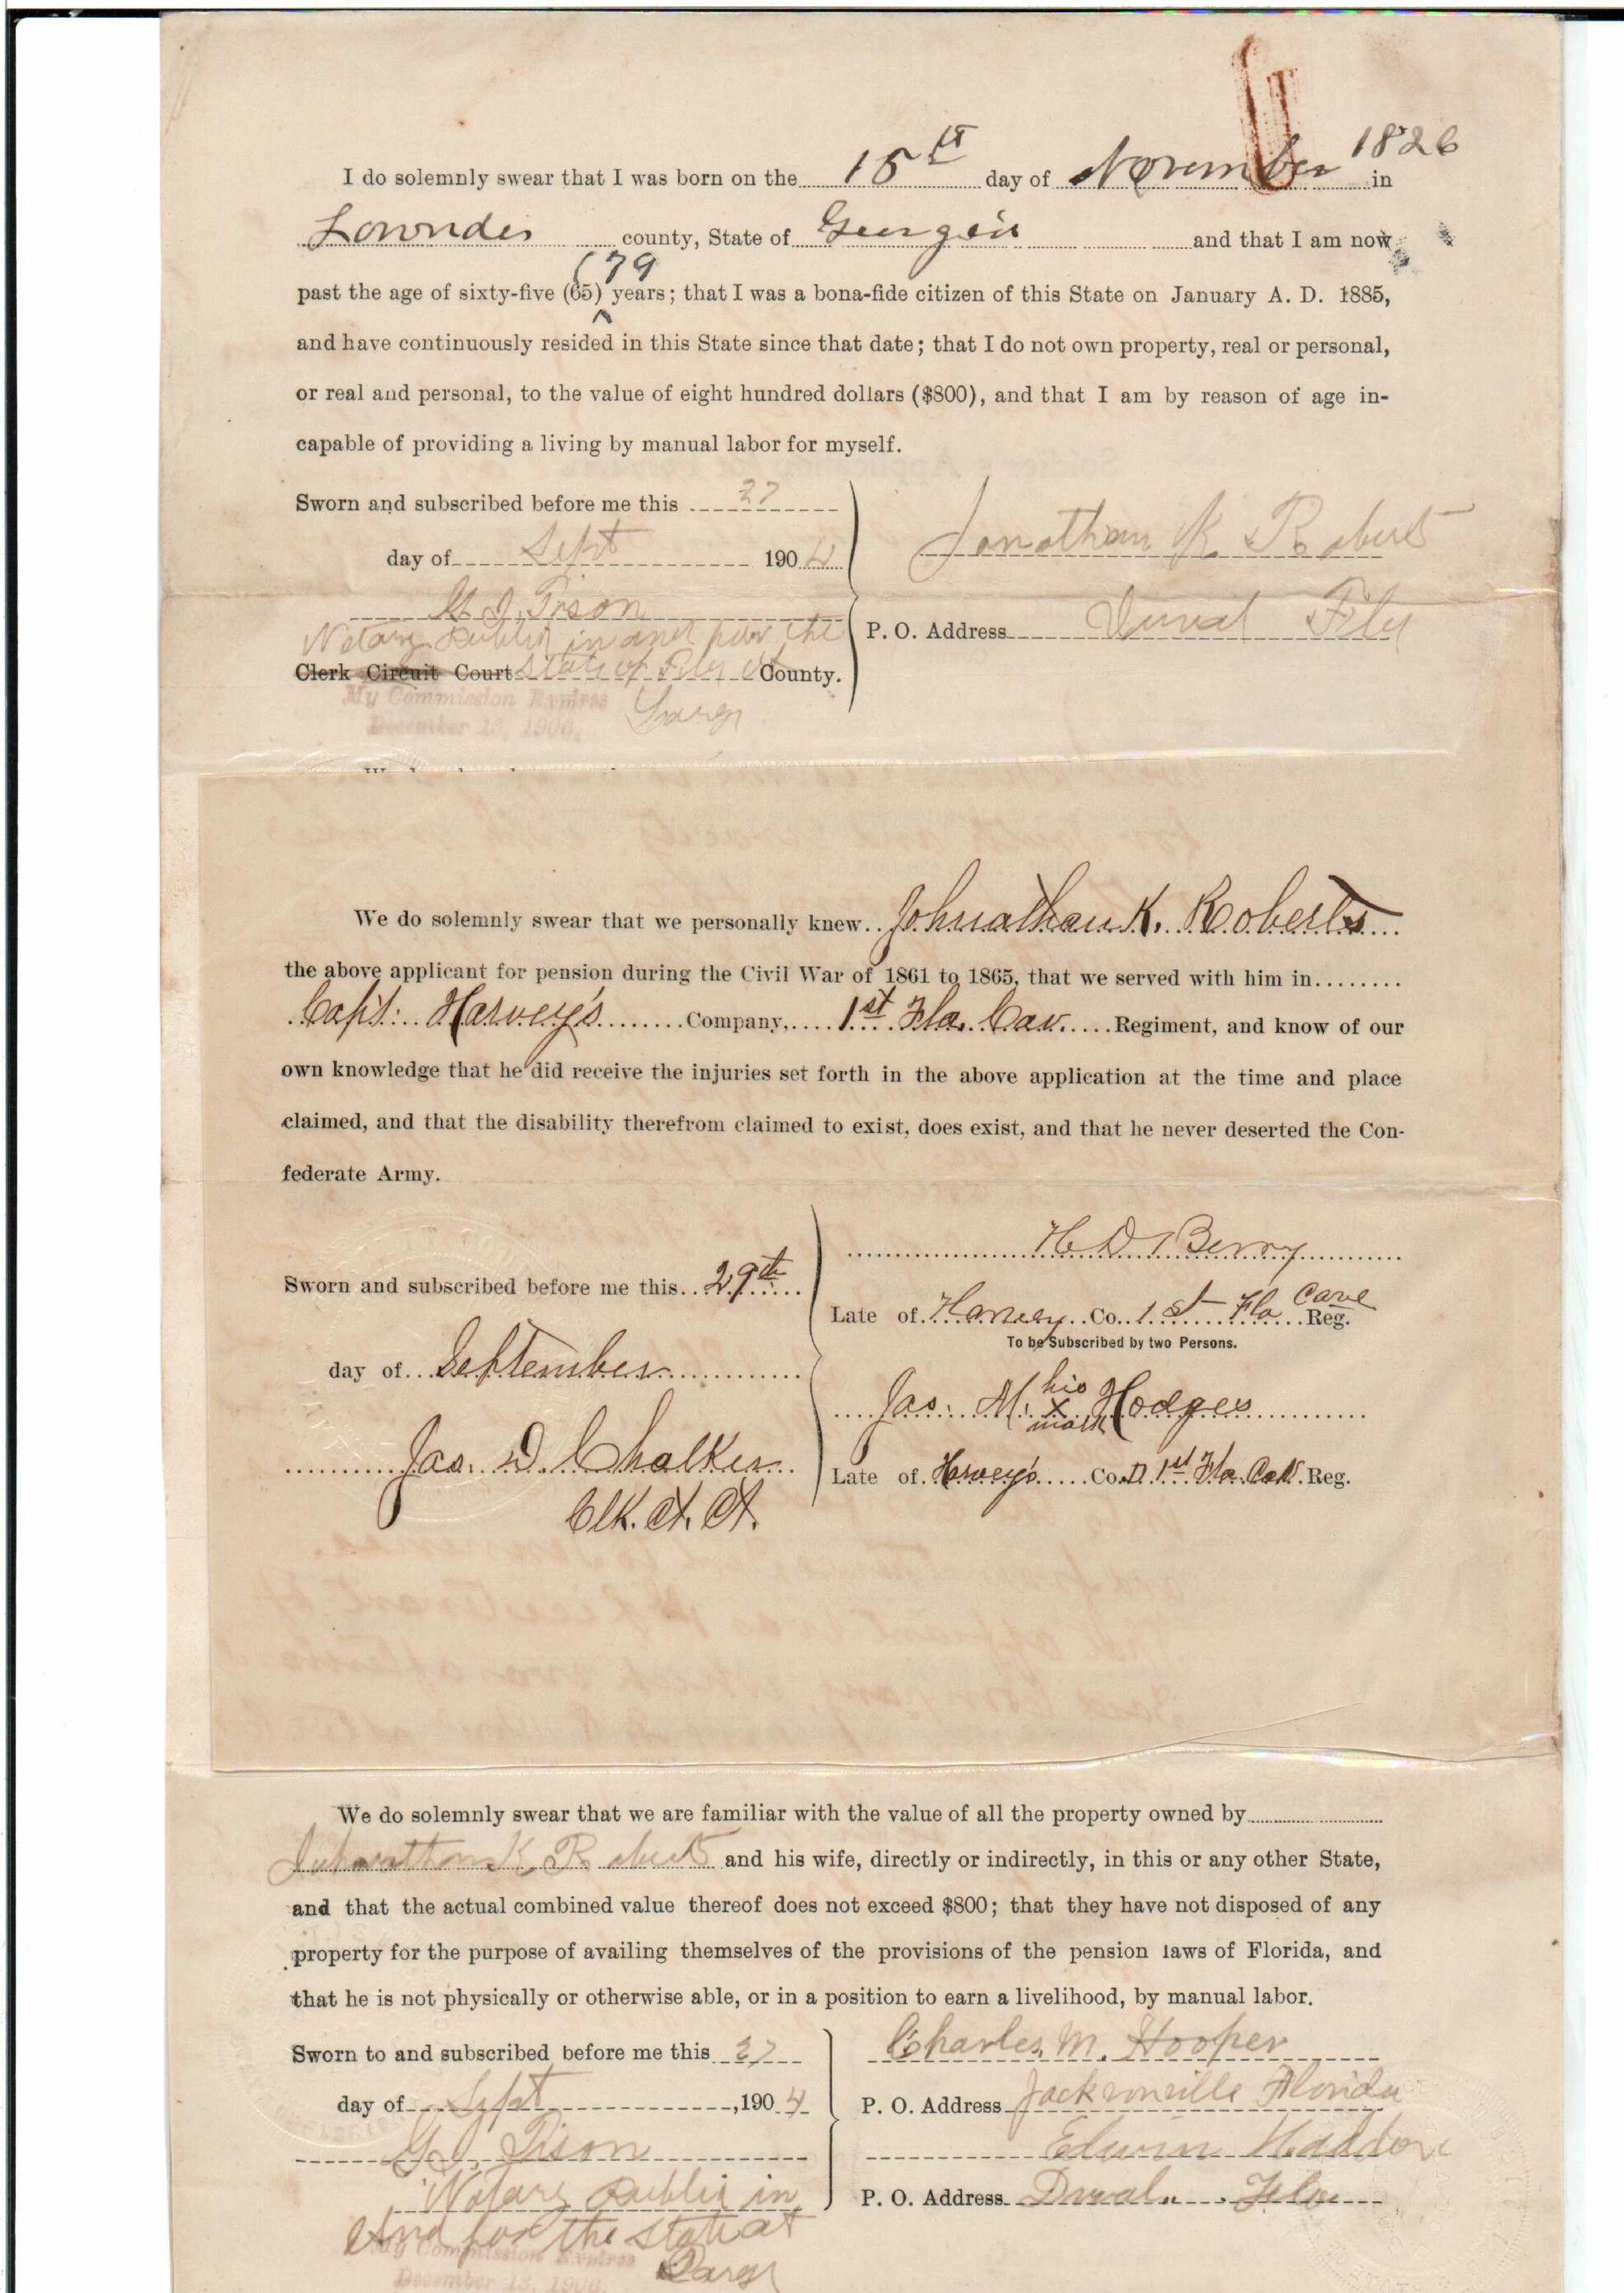 1826
I do solemnly swear that I was born on the 15th day of November in
Lowndes county, State of Georgia and that I am now
(79
past the age of sixty-five (65) years; that I was a bona-fide citizen of this State on January A. D. 1885,
and have continuously resided in this State since that date; that I do not own property, real or personal,
or real and personal, to the value of eight hundred dollars ($800), and that I am by reason of age in-
capable of providing a living by manual labor for myself.
Sworn and subscribed before me this 27
day of Sept 1904
Jonathan K. Roberts
Tison
P. O. Address Duval Fla
Notary Public in and for the
Clerk Circuit Court State of Fla at County.
My Commission Expires
Large
December 13, 1906.
We do solemnly swear that we personally knew Johnathan K. Roberts
the above applicant for pension during the Civil War of 1861 to 1865, that we served with him in
Capt. Harvey's Company, 1st Fla. Cav. Regiment, and know of our
own knowledge that he did receive the injuries set forth in the above application at the time and place
claimed, and that the disability therefrom claimed to exist, does exist, and that he never deserted the Con-
federate Army.
H D Berry
Sworn and subscribed before me this 29th
Late of Harvey Co. 1st Fla Cave Reg.
To be Subscribed by two Persons.
day of September
Jas. M. his x mark Hodges
Jas. D. Chalker
Late of Harvey's Co. 1st Fla. Cav. Reg.
Clk. Ct. Ct.
We do solemnly swear that we are familiar with the value of all the property owned by
Johnathan K. Roberts and his wife, directly or indirectly, in this or any other State,
and that the actual combined value thereof does not exceed $800; that they have not disposed of any
property for the purpose of availing themselves of the provisions of the pension laws of Florida, and
that he is not physically or otherwise able, or in a position to earn a livelihood, by manual labor.
Sworn to and subscribed before me this 27
Charles M. Hooper
day of Sept, 1904
P. O. Address Jacksonville Florida
Tison
Edwin Haddon
Notary Public in
P. O. Address Duval Fla
and for the State at
My Commission Expires
Large
December 13, 1906.